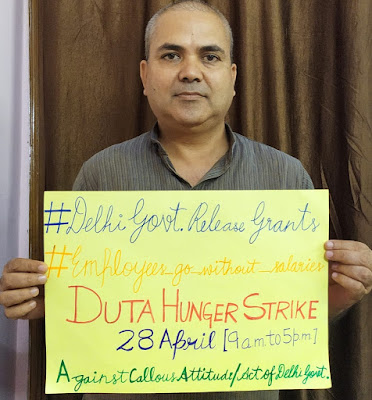 #Delhi Govt. Release Grants
#Employees_go_without_salaries
DUTA HUNGER STRIKE
28 April [9am to 5pm]
Against Callous Attitude/Act of Delhi Govt.